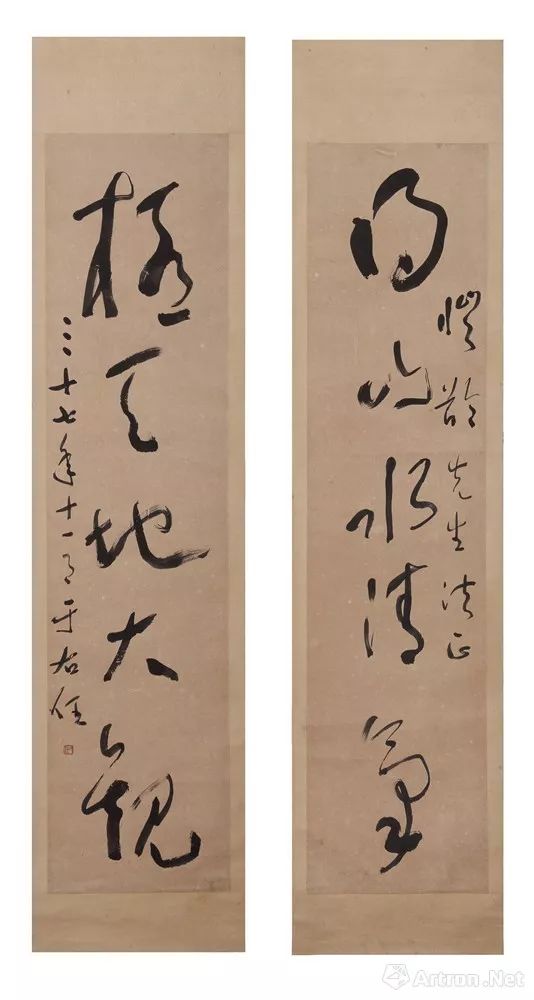 得山水清气
先生法正
极天地大观
三十七年十一月于右任
Artron.Net